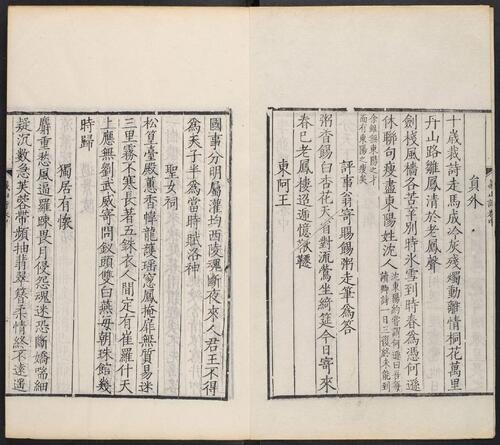 員外
十歲裁詩走馬成冷灰殘燭動離情桐花萬里
丹山路雛鳳清於老鳳聲
劍棧風檣各苦辛別時氷雪到時春為憑何遜
休聯句瘦盡東陽姓沈人
沈東陽約嘗謂何遜曰吾每
讀卿詩一日三復終未能到
余雖無東陽之才
而有東陽之瘦矣
評事翁寄賜餳粥走筆為答
粥香餳白杏花天省對流鶯坐綺筵今日寄來
春已老鳳樓迢遞憶鞦韆
東阿王
國事分明屬灌均西陵魂斷夜來人君王不得
為天子半為當時賦洛神
聖女祠
松篁臺殿蕙香幃龍護瑶窓鳳掩扉無質易迷
三里霧不寒長著五銖衣人間定有崔羅什天
上應無劉武威寄問釵頭雙白燕每朝珠館幾
時歸
獨居有懷
麝重愁風逼羅踈畏月侵怨魂迷恐斷嬌喘細
疑沉數急芙蓉帶頻抽翡翠簪柔情終不遠遥